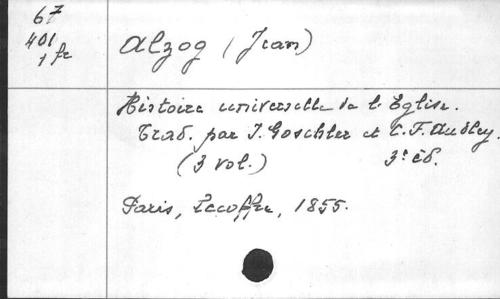 67
401
1 fr
Alzog (Jean)
Histoire universelle de l'Eglise.
Trad. par I. Goschler et C. F. Audley.
(3 vol.) 3e éd.
Paris, Lecoffre, 1855.